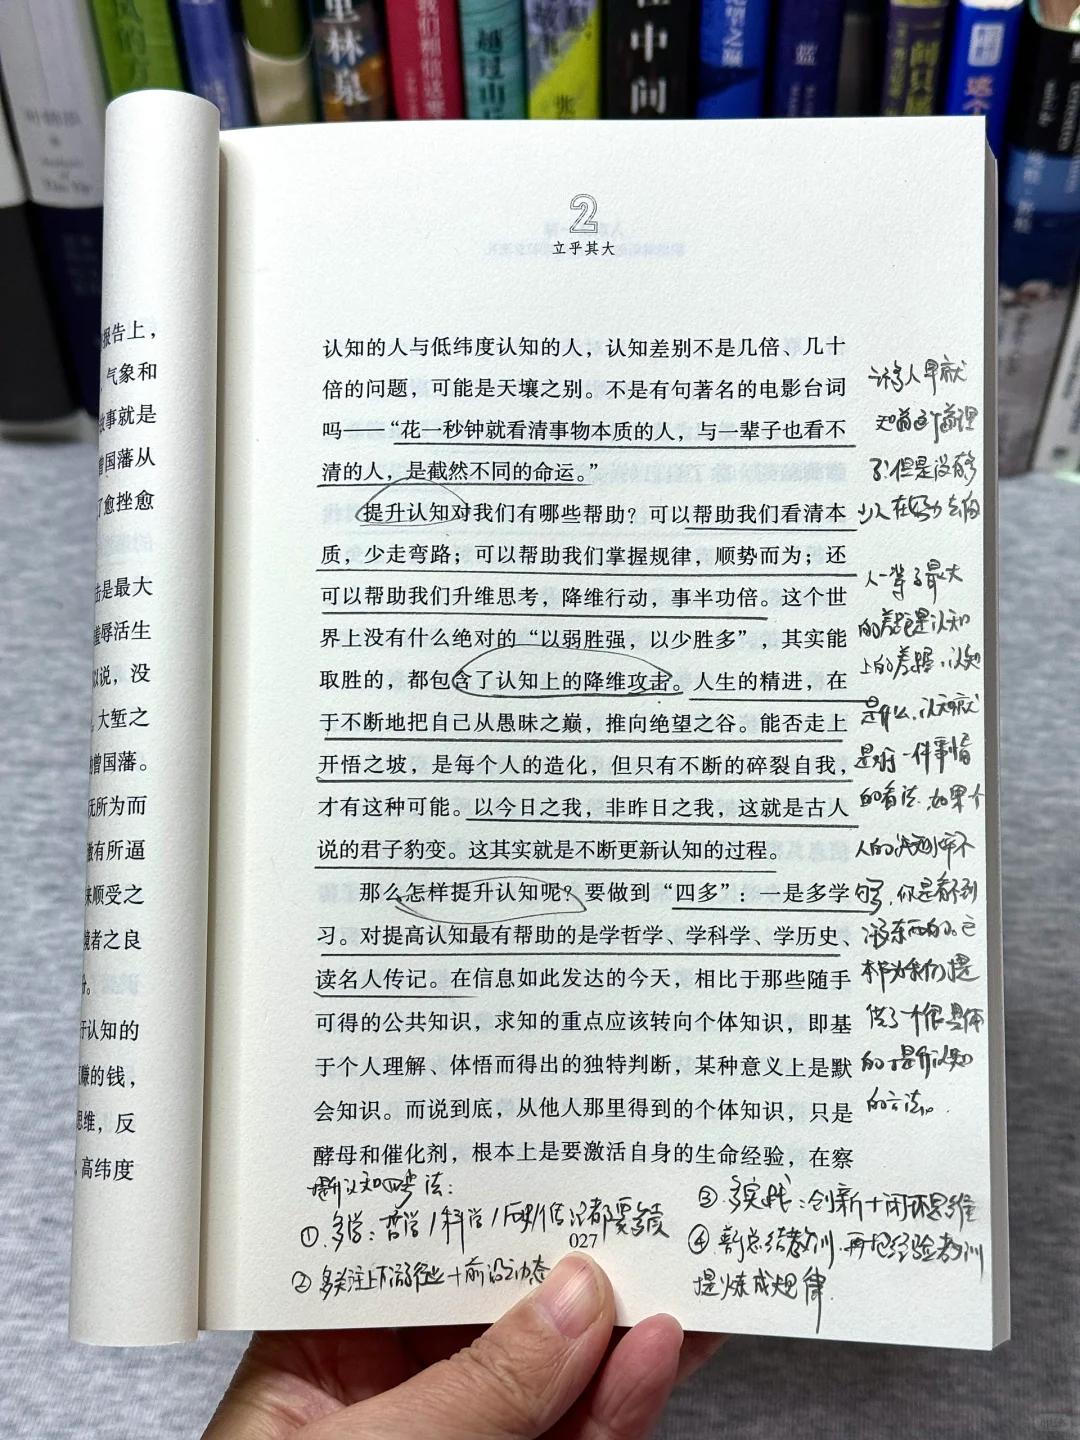 里林泉
越过山丘
中间
蓝
这个
报告上，
气象和
故事就是
曾国藩从
了愈挫愈
击是最大
屈辱活生
以说，没
大堑之
曾国藩。
无所为而
有所逼
来顺受之
境者之良
于认知的
赚的钱，
思维，反
高纬度
2
立乎其大
认知的人与低纬度认知的人，认知差别不是几倍、几十
倍的问题，可能是天壤之别。不是有句著名的电影台词
吗——“花一秒钟就看清事物本质的人，与一辈子也看不
清的人，是截然不同的命运。”
提升认知对我们有哪些帮助？可以帮助我们看清本
质，少走弯路；可以帮助我们掌握规律，顺势而为；还
可以帮助我们升维思考，降维行动，事半功倍。这个世
界上没有什么绝对的“以弱胜强，以少胜多”，其实能
取胜的，都包含了认知上的降维攻击。人生的精进，在
于不断地把自己从愚昧之巅，推向绝望之谷。能否走上
开悟之坡，是每个人的造化，但只有不断的碎裂自我，
才有这种可能。以今日之我，非昨日之我，这就是古人
说的君子豹变。这其实就是不断更新认知的过程。
那么怎样提升认知呢？要做到“四多”：一是多学
习。对提高认知最有帮助的是学哲学、学科学、学历史、
读名人传记。在信息如此发达的今天，相比于那些随手
可得的公共知识，求知的重点应该转向个体知识，即基
于个人理解、体悟而得出的独特判断，某种意义上是默
会知识。而说到底，从他人那里得到的个体知识，只是
酵母和催化剂，根本上是要激活自身的生命经验，在察
许多人早就
知道这个道理
了，但是没有多
少人在努力去做
人一辈子最大
的差距是认知
上的差距，认知
是什么，认知就
是对一件事情
的看法，如果个
人的认知水平不
够，你是看不到
这本书为我们提
供了一个很具体
的提升认知
的方法。
提升认知四步法：
① 多学：哲学/科学/历史/传记都要读
② 多关注上下游行业+前沿动态
③ 多实践：创新+闭环思维
④ 多总结教训，再把经验教训
提炼成规律
027